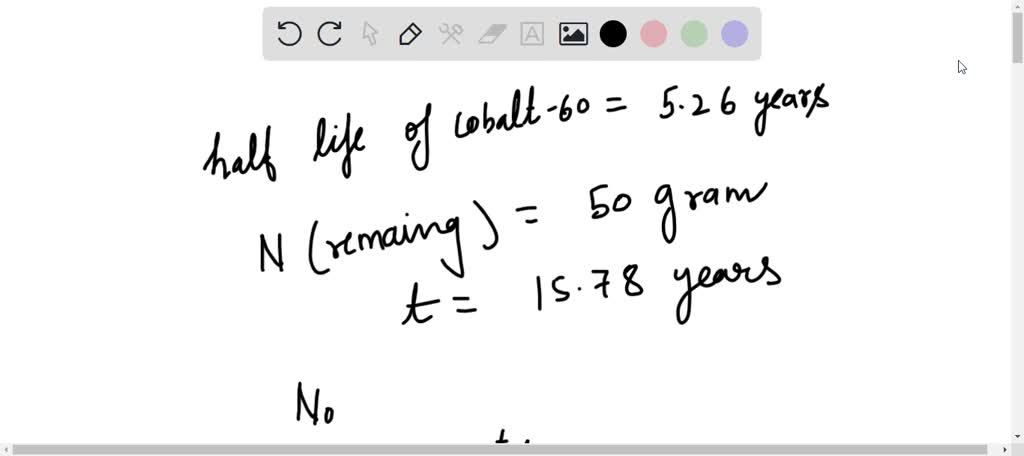 half life of cobalt-60 = 5.26 years
N (remaing) = 50 gram
t = 15.78 years
No